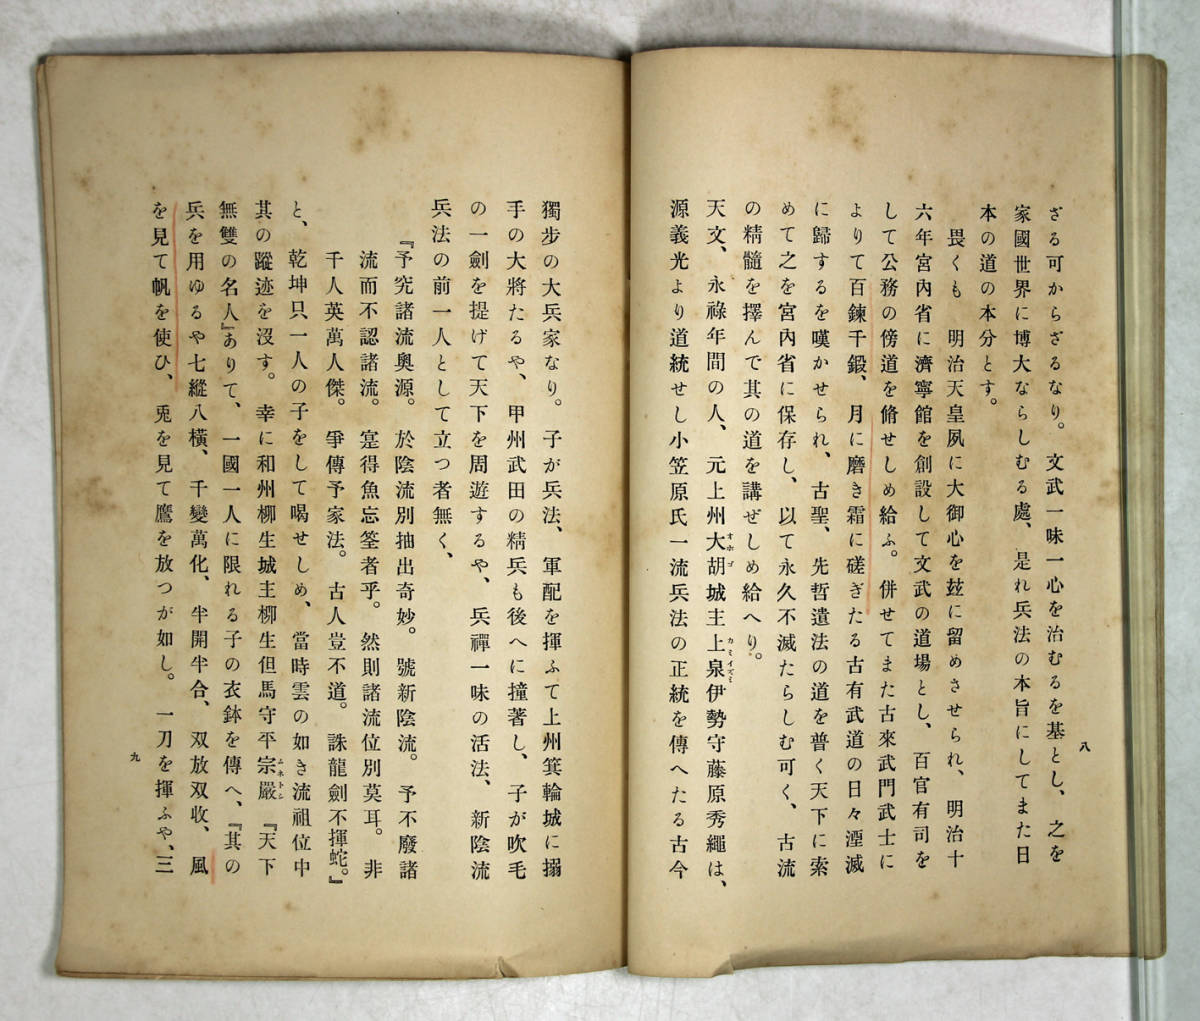 ざる可からざるなり。文武一味一心を治むるを基とし、之を
家國世界に博大ならしむる處、是れ兵法の本旨にしてまた日
本の道の本分とす。
畏くも 明治天皇夙に大御心を玆に留めさせられ、明治十
六年宮內省に濟寧館を創設して文武の道場とし、百官有司を
して公務の傍道を脩せしめ給ふ。併せてまた古來武門武士に
よりて百鍊千鍛、月に磨き霜に磋ぎたる古有武道の日々湮滅
に歸するを嘆かせられ、古聖、先哲遺法の道を普く天下に索
めて之を宮內省に保存し、以て永久不滅たらしむ可く、古流
の精髓を擇んで其の道を講ぜしめ給へり。
天文、永祿年間の人、元上州大胡城主上泉伊勢守藤原秀繩は、
オホゴ
カミイズミ
源義光より道統せし小笠原氏一流兵法の正統を傳へたる古今
八
獨步の大兵家なり。子が兵法、軍配を揮ふて上州箕輪城に搦
手の大將たるや、甲州武田の精兵も後へに撞著し、子が吹毛
の一劍を提げて天下を周遊するや、兵禪一味の活法、新陰流
兵法の前一人として立つ者無く、
『予究諸流奧源。於陰流別抽出奇妙。號新陰流。予不廢諸
流而不認諸流。寔得魚忘筌者乎。然則諸流位別莫耳。非
千人英萬人傑。爭傳予家法。古人豈不道。誅龍劍不揮蛇。』
と、乾坤只一人の子をして喝せしめ、當時雲の如き流祖位中
其の蹤迹を沒す。幸に和州柳生城主柳生但馬守平宗嚴『天下
ムネトシ
無雙の名人』ありて、一國一人に限れる子の衣鉢を傳へ、『其の
兵を用ゆるや七縱八橫、千變萬化、半開半合、双放双收、風
を見て帆を使ひ、兎を見て鷹を放つが如し。一刀を揮ふや、三
九